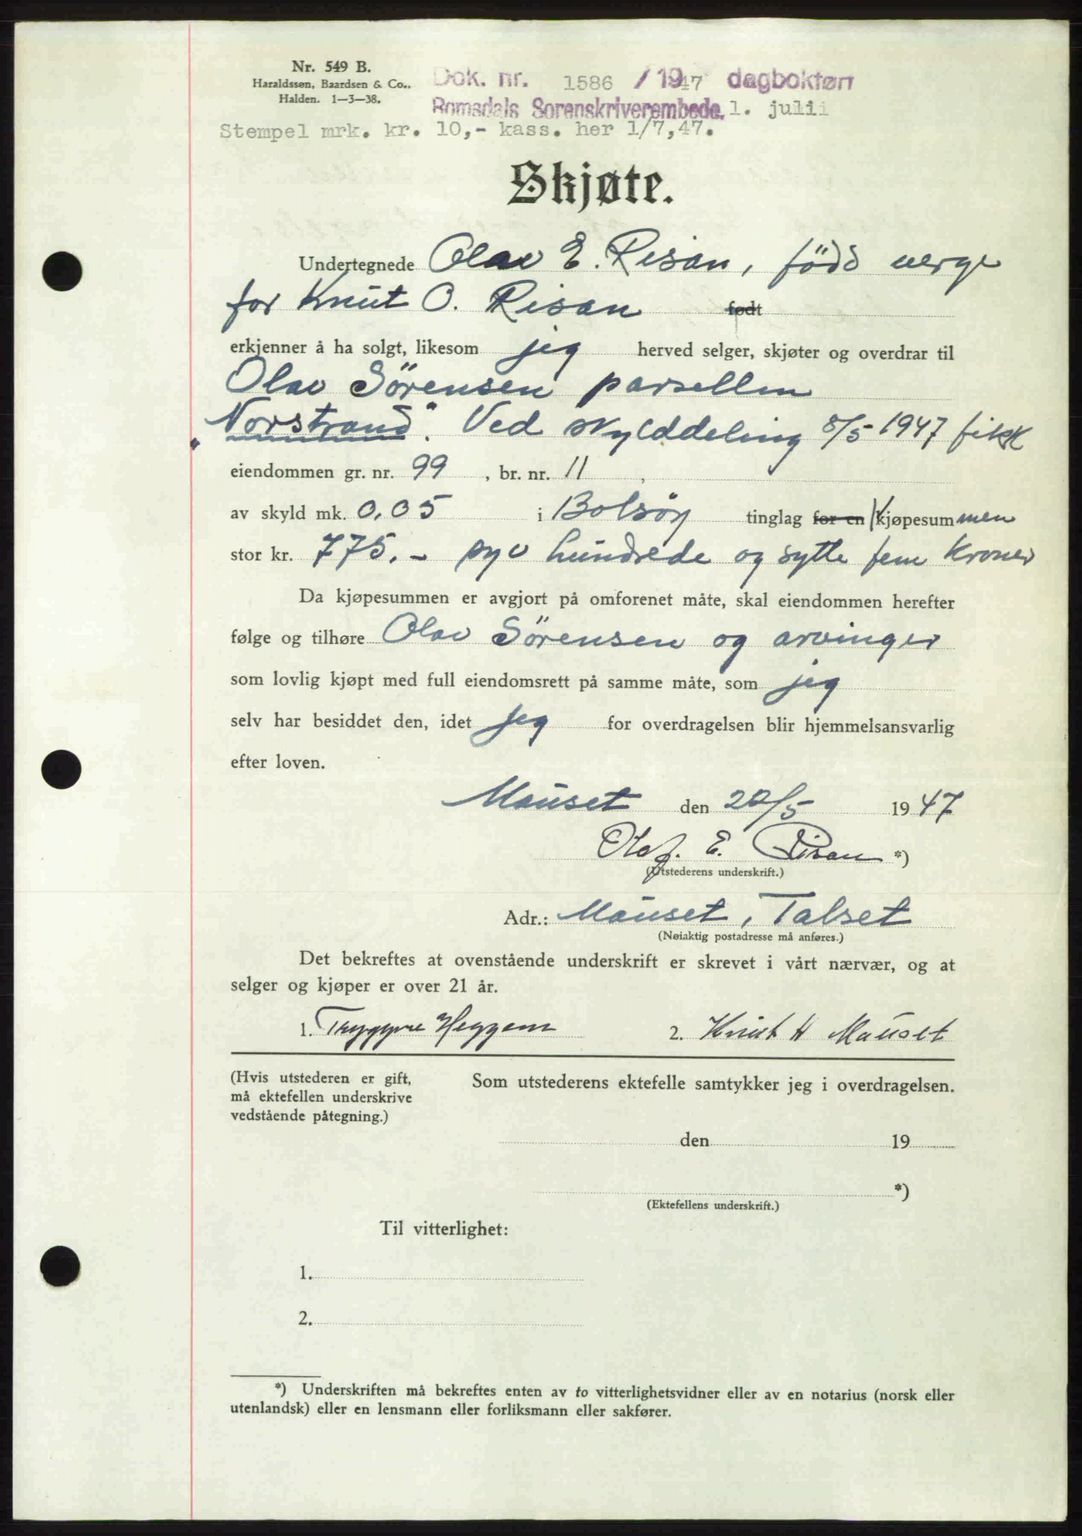 Nr. 549 B.
Haraldssen, Baardsen & Co.,
Halden. 1—3—38.
Dok. nr. 1586 / 1947 dagbokført
Romsdals Sorenskriverembede, 1. julii
Stempel mrk. kr. 10,- kass. her 1/7,47.
Skjøte.
Undertegnede Olav E. Risan, född verge
for Knut O. Risan født
erkjenner å ha solgt, likesom jeg herved selger, skjøter og overdrar til
Olav Sörensen parsellen
„Norstrand". Ved skylddeling 8/5 1947 fikk
eiendommen gr. nr. 99, br. nr. 11,
av skyld mk. 0,05 i Bolsöy tinglag for en kjøpesummen
stor kr. 775.- syv hundrede og sytti fem Kroner
Da kjøpesummen er avgjort på omforenet måte, skal eiendommen herefter
følge og tilhøre Olav Sörensen og arvinger
som lovlig kjøpt med full eiendomsrett på samme måte, som jeg
selv har besiddet den, idet jeg for overdragelsen blir hjemmelsansvarlig
efter loven.
Mauset den 20/5 1947
Olaf. E. Risan *)
(Utstederens underskrift.)
Adr.: Mauset, Talset
(Nøiaktig postadresse må anføres.)
Det bekreftes at ovenstående underskrift er skrevet i vårt nærvær, og at
selger og kjøper er over 21 år.
1. Tryggve Heggem 2. Knut H Mauset
(Hvis utstederen er gift,
må ektefellen underskrive
vedstående påtegning.)
Som utstederens ektefelle samtykker jeg i overdragelsen.
den 19
*)
(Ektefellens underskrift.)
Til vitterlighet:
1.
2.
*) Underskriften må bekreftes enten av to vitterlighetsvidner eller av en notarius (norsk eller
utenlandsk) eller en lensmann eller forliksmann eller sakfører.